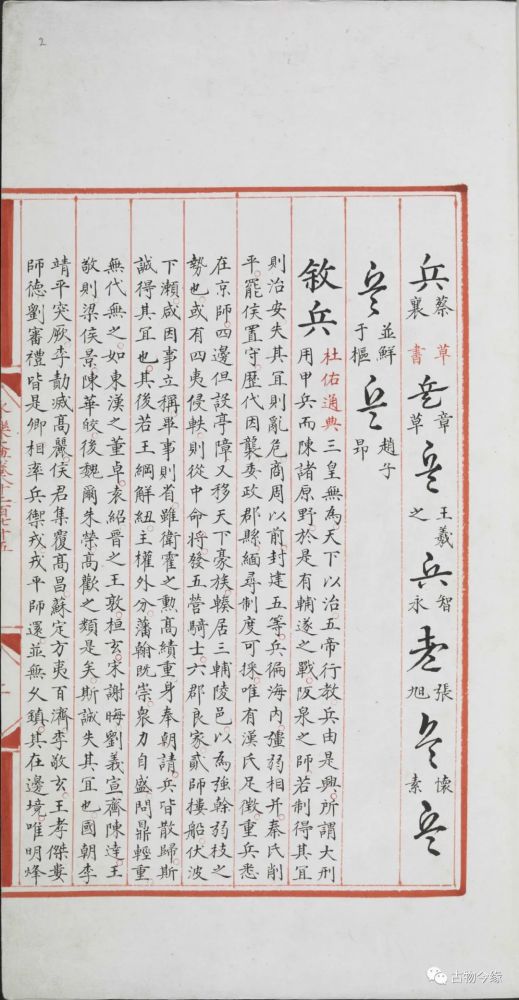 兵 蔡襄 草書 兵 章草 兵 王羲之 兵 智永 兵 張旭 兵 懷素 兵
兵 並鮮于樞 兵 趙子昂
敘兵 杜佑通典 三皇無為天下以治五帝行教兵由是興所謂大刑
用甲兵而陳諸原野於是有輔遂之戰阪泉之師若制得其宜
則治安失其宜則亂危商周以前封建五等兵徧海內彊弱相并秦氏削
平罷侯置守歷代因襲委政郡縣緬尋制度可採唯有漢氏足徵重兵悉
在京師四邊但設亭障又移天下豪族輳居三輔陵邑以為強幹弱枝之
勢也或有四夷侵軼則從中命將發五營騎士六郡良家貳師樓船伏波
下瀨咸因事立稱畢事則省雖衛霍之勲高績重身奉朝請兵皆散歸斯
誠得其宜也其後若王綱解紐主權外分藩翰既崇衆力自盛問鼎輕重
無代無之如東漢之董卓袁紹晉之王敦桓玄宋謝晦劉義宣齊陳達王
敬則梁侯景陳華皎後魏爾朱榮高歡之類是矣斯誠失其宜也國朝李
靖平突厥李勣滅高麗侯君集覆高昌蘇定方夷百濟李敬玄王孝傑婁
師德劉審禮皆是卿相率兵禦戎戎平師還並無久鎮其在邊境唯明烽
2
古物今缘